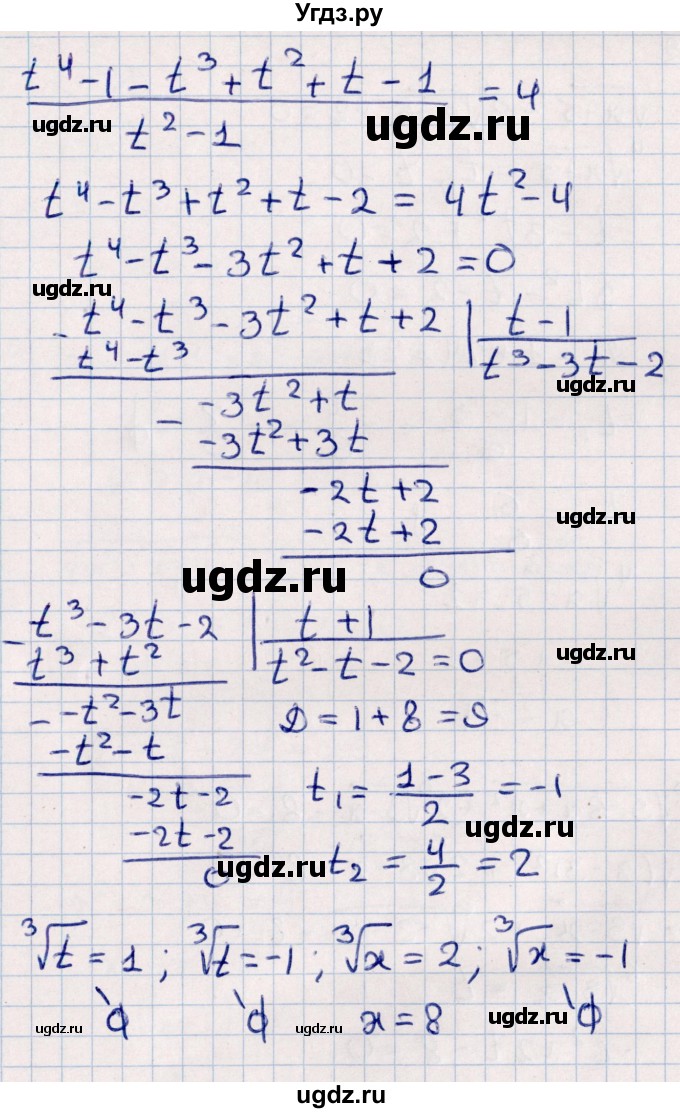 Угдз.ру
t⁴ - 1 - t³ + t² + t - 1 = 4
ugdz.ru
ugdz.ru
t² - 1
t⁴ - t³ + t² + t - 2 = 4t² - 4
t⁴ - t³ - 3t² + t + 2 = 0
ugdz.ru
- t⁴ - t³ - 3t² + t + 2 | t - 1
t⁴ - t³ t³ - 3t - 2
ugdz.ru
- -3t² + t
-3t² + 3t
-2t + 2
ugdz.ru
-2t + 2
ugdz.ru
0
- t³ - 3t - 2 | t + 1
t³ + t² t² - t - 2 = 0
ugdz.ru
- -t² - 3t D = 1 + 8 = 9
-t² - t
-2t - 2 t₁ = (1 - 3)/2 = -1
-2t - 2
ugdz.ru
0 t₂ = 4/2 = 2
∛t = 1 ; ∛t = -1 ; ∛x = 2 ; ∛x = -1
ugdz.ru ϕ ϕ ugdz.ru x = 8 ugdz.ru ϕ
ugdz.ru